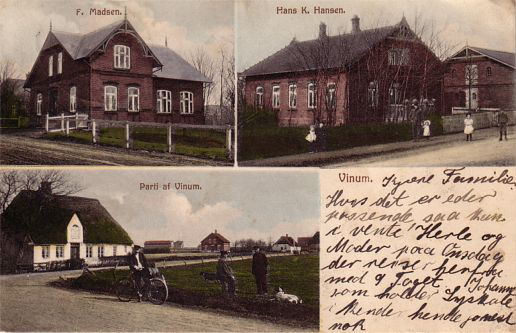 F. Madsen.
Hans K. Hansen.
Parti af Vinum.
Vinum.
Kjere Familie.
Hvis det er eder
passende saa kun
i vente Herle og
Moder paa Onsdag
der reiser herfra
med 9 Toget. Johanne
som holder Syskole
i Kender hende jo nest
nok